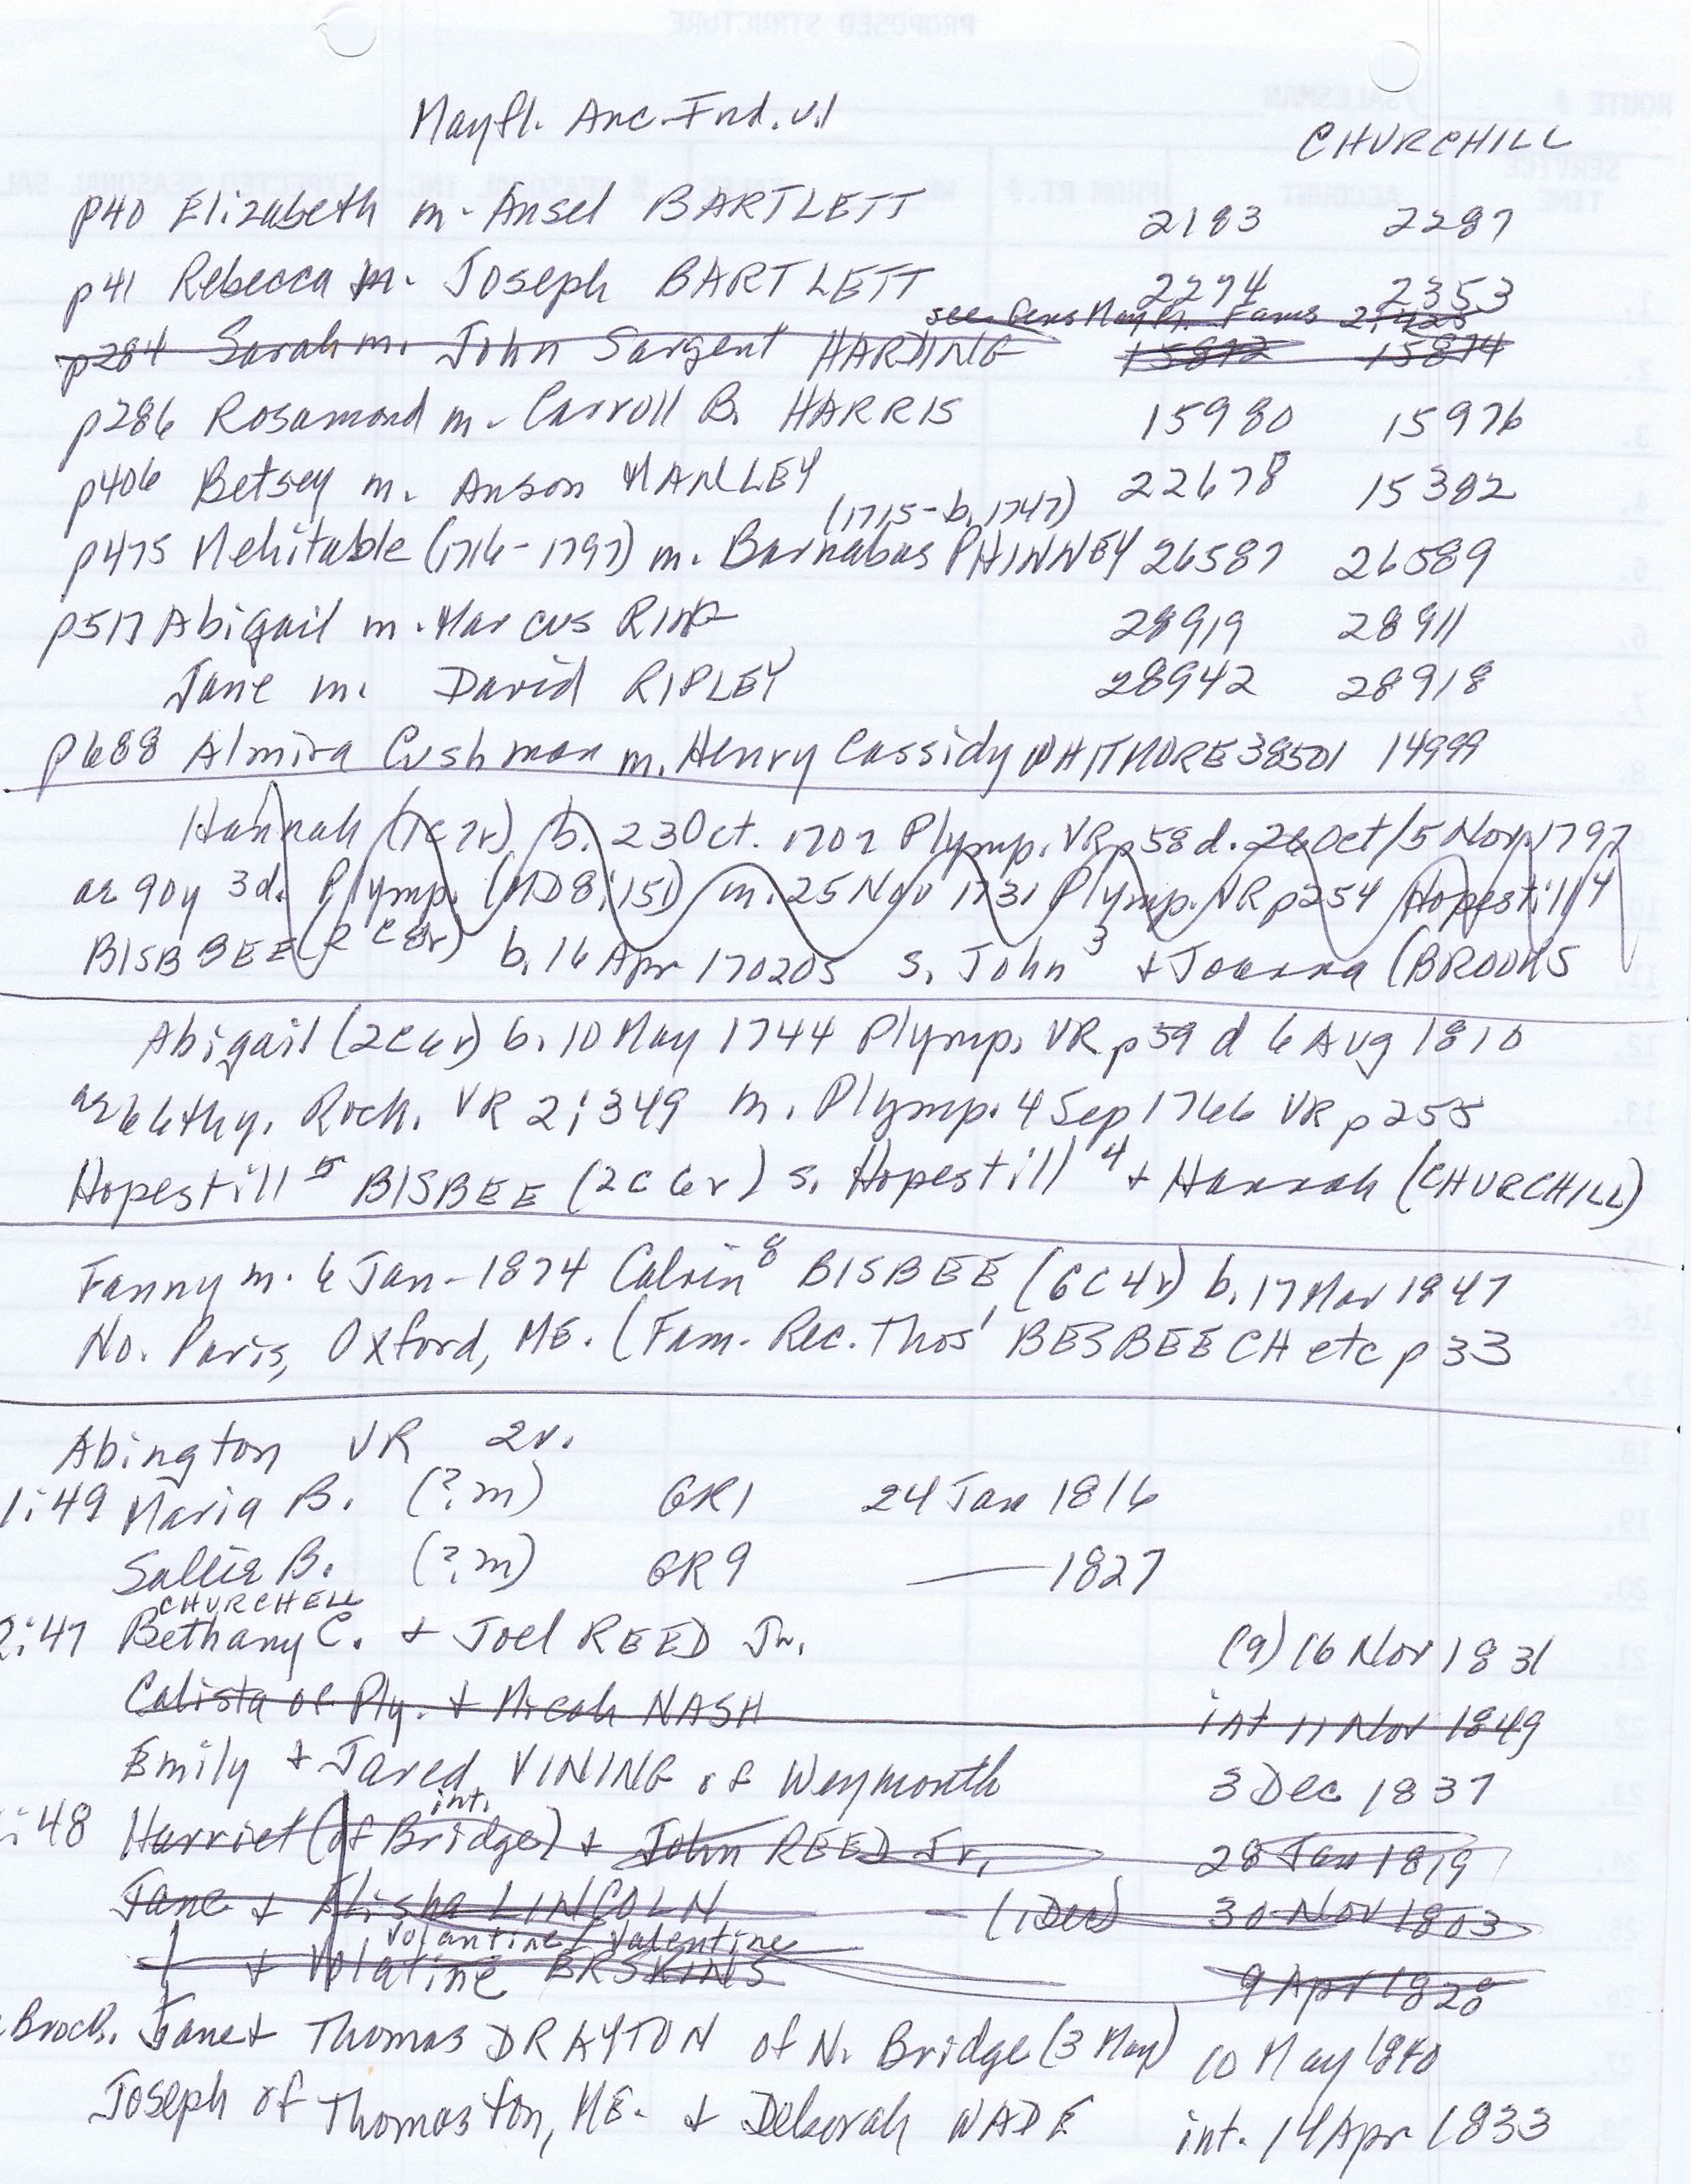 Mayfl. Anc. Ind. v.1
CHURCHILL
p40 Elizabeth m. Ansel BARTLETT 2183 2287
p41 Rebecca m. Joseph BARTLETT 2294 2353
see Gens Mayfl. Fams 2:
p284 Sarah m. John Sargent HARDING 15872 15874
p286 Rosamond m. Carroll B. HARRIS 15980 15976
p406 Betsey m. Anson MANLEY 22678 15382
(1715-b. 1747)
p475 Mehitable (1716-1797) m. Barnabas PHINNEY 26587 26589
p517 Abigail m. Marcus RING 28919 28911
Jane m. David RIPLEY 28942 28918
p688 Almira Cushman m. Henry Cassidy WHITMORE 38501 14999
Hannah (1c7r) b. 23 Oct. 1707 Plymp. VR p58 d. 26 Oct/5 Nov 1797
ae 90y 3d. Plymp. (MD8:151) m. 25 Nov 1731 Plymp. VR p254 Hopestill4
BISBEE (2c8r) b. 16 Apr 1702O5 s. John3 + Joanna (BROOKS
Abigail (2c6r) b. 10 May 1744 Plymp. VR p59 d 6 Aug 1810
ae 66thy. Roch. VR 2:349 m. Plymp. 4 Sep 1766 VR p255
Hopestill5 BISBEE (2c6r) s. Hopestill4 + Hannah (CHURCHILL)
Fanny m. 6 Jan 1874 Calvin8 BISBEE (6C4r) b. 17 Mar 1847
No. Paris, Oxford, ME. (Fam. Rec. Thos1 BESBEECH etc p33
Abington VR 2v.
1:49 Maria B. (?m) GR1 24 Jan 1816
Sallie B. (?m) GR9 — 1827
CHURCHELL
2:47 Bethany C. + Joel REED Jr. (9) 16 Nov 1831
Calista of Ply. + Micah NASH int 11 Nov 1849
Emily + Jared VINING of Weymouth 3 Dec 1837
int.
:48 Harriet (of Bridge) + John REED Jr. 28 Jan 1819
Jane + Elisha LINCOLN (1 Dec) 30 Nov 1803
Volantine/Valentine
+ Volatine ERSKINS 9 Apr 1828
Brock. Jane + Thomas DRAYTON of N. Bridge (3 May) 10 May 1840
Joseph of Thomaston, ME. + Deborah WADE int. 14 Apr 1833